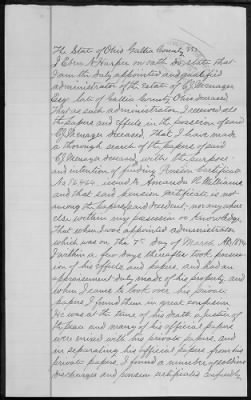 The State of Ohio Gallia County ss
I Eben A Harper on oath do state that
I am the duly appointed and qualified
administrator of the estate of
Esq. late of Gallia County Ohio deceased
That as such administrator, I received all
the papers and effects in the possession of said
deceased, that I have made
a thorough search of the papers of said
deceased with the purpose
and intention of finding Pension Certificate
No issued to Amanda
and that said pension certificate is not
among the papers of said decedent, nor any where
else within my possession or knowledge
That when I was appointed administrator
which was on the 7th day of March AD
I within a few days thereafter took posses-
sion of his effects and papers, and had an
appraisement duly made of his property, and
when I came to look over his private
papers, I found them in great confusion
He was at the time of his death a justice of
the Peace and many of his official papers
were mixed with his private papers, and
in separating his official papers from his
private papers, I found a number of soldiers
discharges and pension certificates